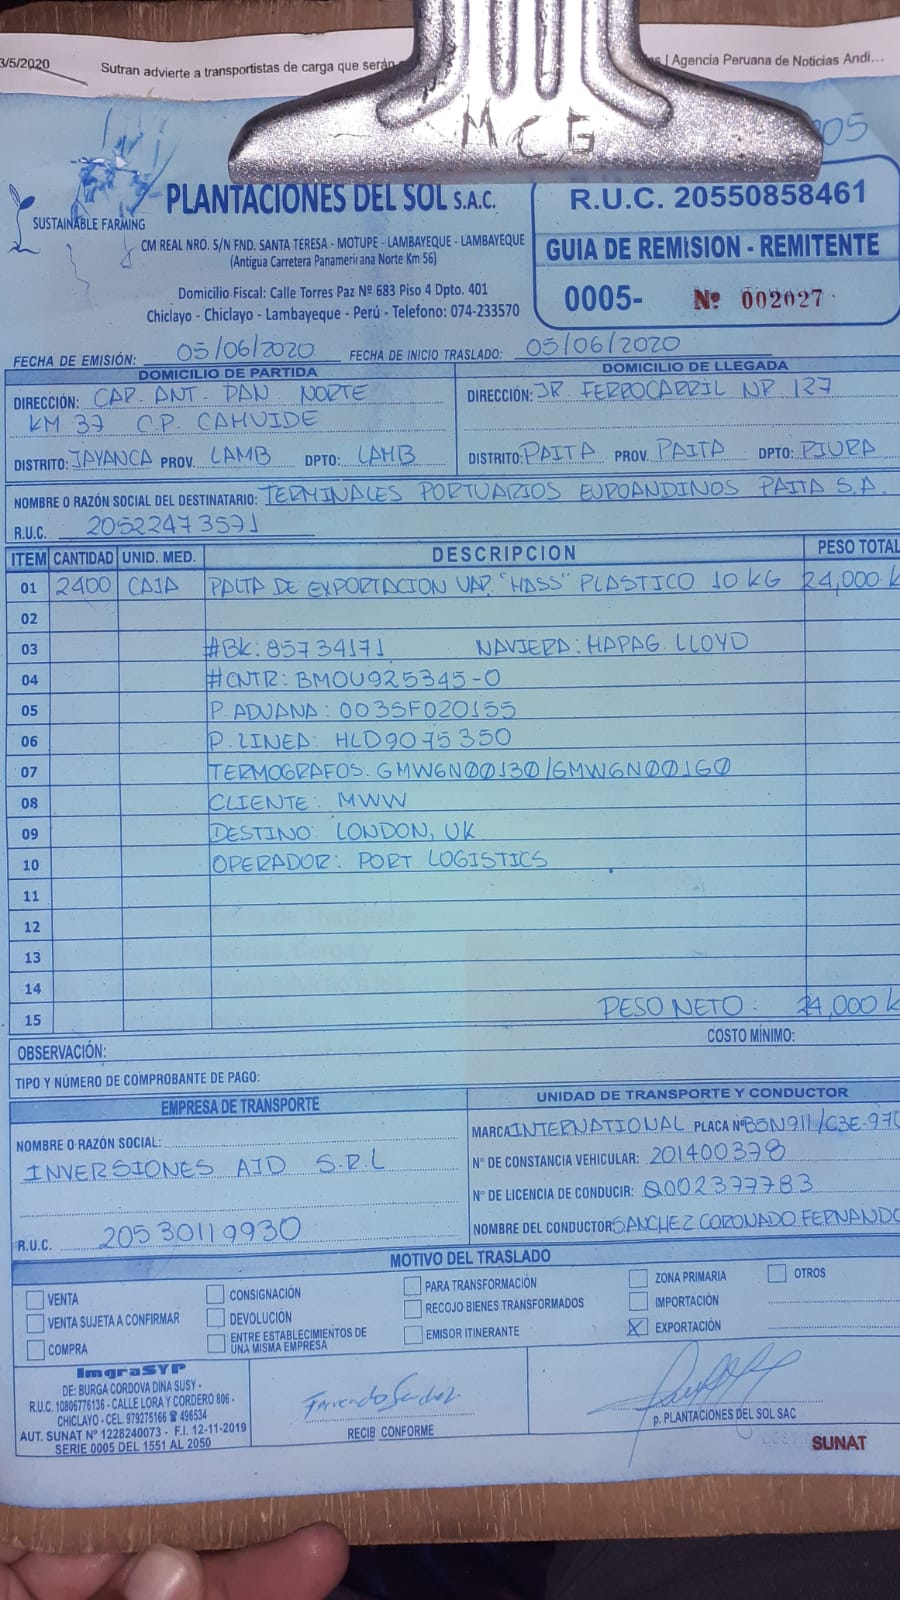 3/5/2020 Sutran advierte a transportistas de carga que serán | Agencia Peruana de Noticias Andi...
MCG
05
SUSTAINABLE FARMING
PLANTACIONES DEL SOL S.A.C.
CM REAL NRO. S/N FND. SANTA TERESA - MOTUPE - LAMBAYEQUE - LAMBAYEQUE
(Antigua Carretera Panamericana Norte Km 56)
Domicilio Fiscal: Calle Torres Paz Nº 683 Piso 4 Dpto. 401
Chiclayo - Chiclayo - Lambayeque - Perú - Telefono: 074-233570
R.U.C. 20550858461
GUIA DE REMISION - REMITENTE
0005- Nº 002027
FECHA DE EMISIÓN: 05/06/2020 FECHA DE INICIO TRASLADO: 05/06/2020
DOMICILIO DE PARTIDA
DIRECCIÓN: CAR. ANT. PAN NORTE
KM 37 C.P. CAHUIDE
DISTRITO: JAYANCA PROV. LAMB DPTO: LAMB
DOMICILIO DE LLEGADA
DIRECCIÓN: JR. FERROCARRIL NR. 127
DISTRITO: PAITA PROV. PAITA DPTO: PIURA
NOMBRE O RAZÓN SOCIAL DEL DESTINATARIO: TERMINALES PORTUARIOS EUROANDINOS PAITA S.A.
R.U.C. 20522473571
ITEM CANTIDAD UNID. MED. DESCRIPCION PESO TOTAL
01 2400 CAJA PALTA DE EXPORTACION VAR. "HASS" PLASTICO 10 KG 24,000 K
02
03 #BK: 85734171 NAVIERA: HAPAG. LLOYD
04 #CNTR: BMOU925345-0
05 P. ADUANA: 0035F020155
06 P. LINEA: HLD9075350
07 TERMOGRAFOS. GMW6N00130/GMW6N00160
08 CLIENTE: MWW
09 DESTINO: LONDON, UK
10 OPERADOR: PORT LOGISTICS
11
12
13
14
15 PESO NETO: 24,000 K
OBSERVACIÓN: COSTO MÍNIMO:
TIPO Y NÚMERO DE COMPROBANTE DE PAGO:
EMPRESA DE TRANSPORTE
NOMBRE O RAZÓN SOCIAL:
INVERSIONES AJD S.R.L
R.U.C. 20530119930
UNIDAD DE TRANSPORTE Y CONDUCTOR
MARCA INTERNATIONAL PLACA Nº B5N911/C3E-970
Nº DE CONSTANCIA VEHICULAR: 201400378
Nº DE LICENCIA DE CONDUCIR: Q002377783
NOMBRE DEL CONDUCTOR: SANCHEZ CORONADO FERNANDO
MOTIVO DEL TRASLADO
VENTA CONSIGNACIÓN PARA TRANSFORMACIÓN ZONA PRIMARIA OTROS
VENTA SUJETA A CONFIRMAR DEVOLUCIÓN RECOJO BIENES TRANSFORMADOS IMPORTACIÓN
COMPRA ENTRE ESTABLECIMIENTOS DE UNA MISMA EMPRESA EMISOR ITINERANTE X EXPORTACIÓN
ImgraSYP
DE: BURGA CORDOVA DINA SUSY -
R.U.C. 10806776136 - CALLE LORA Y CORDERO 806 -
CHICLAYO - CEL. 979275166 ☎ 496534
AUT. SUNAT Nº 1228240073 - F.I. 12-11-2019
SERIE 0005 DEL 1551 AL 2050
Fernando Sanchez
RECIBI CONFORME
p. PLANTACIONES DEL SOL SAC
SUNAT